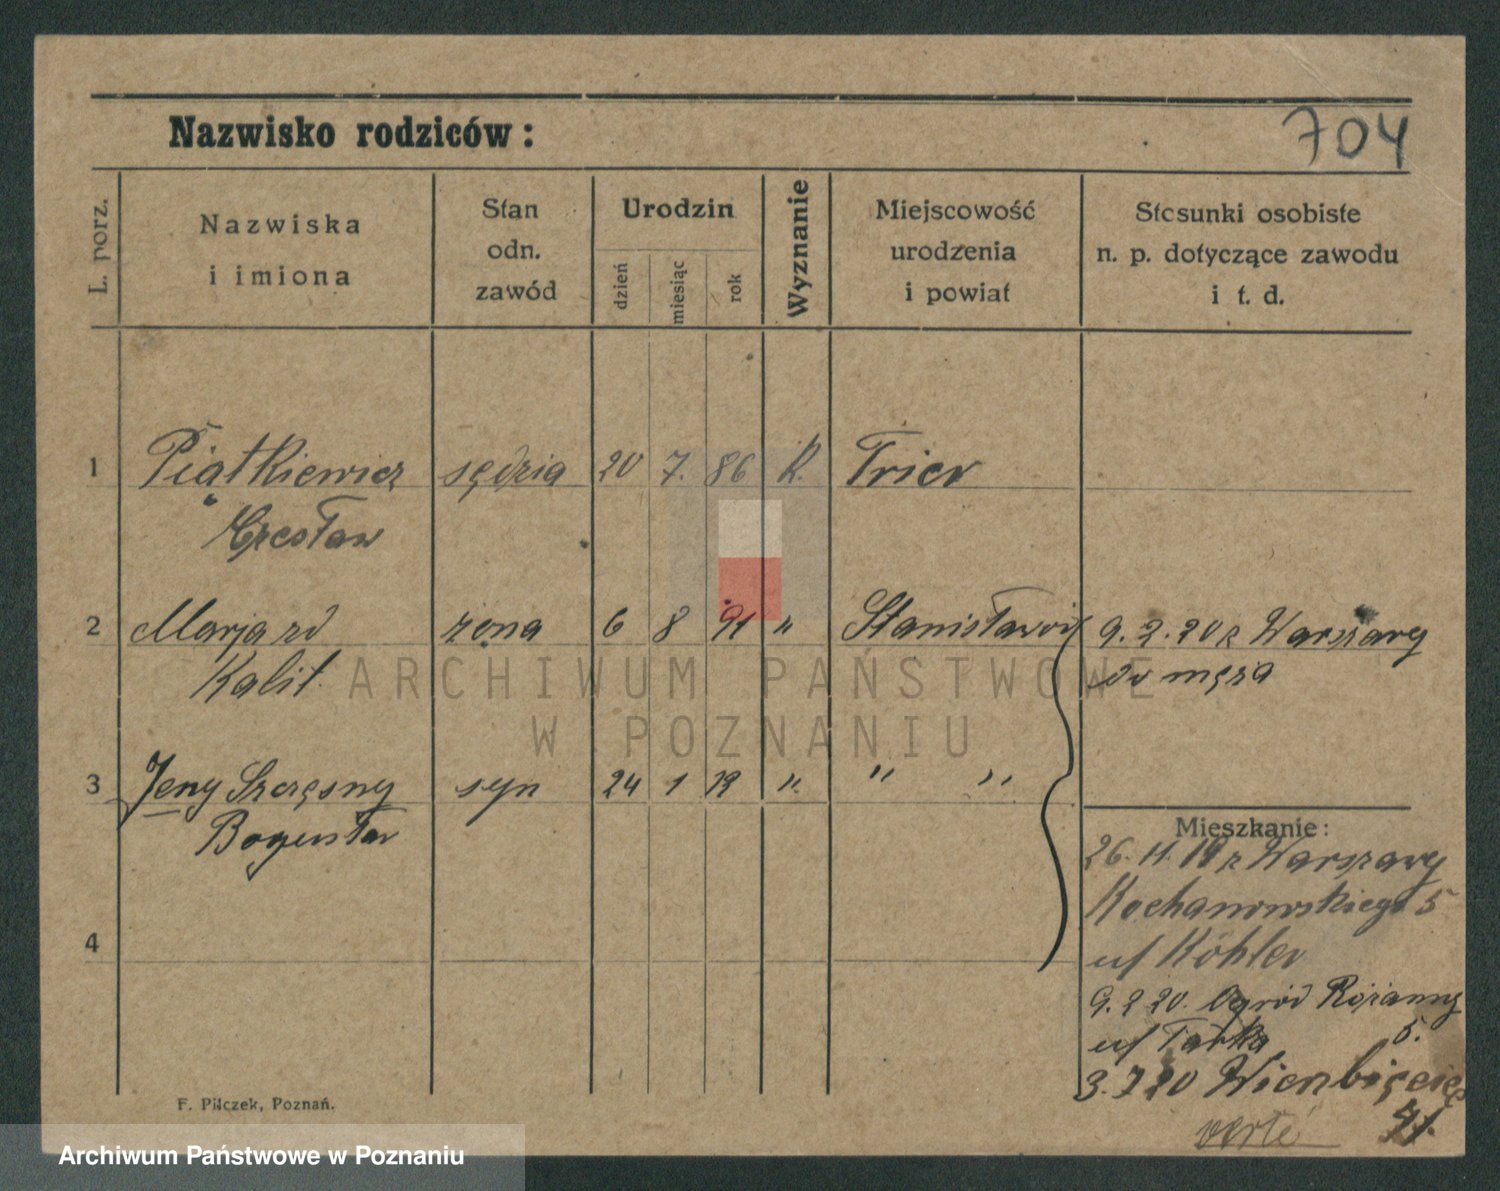 704
Nazwisko rodziców:
L. porz.
Nazwiska
i imiona
Stan
odn.
zawód
Urodzin
dzień
miesiąc
rok
Wyznanie
Miejscowość
urodzenia
i powiat
Stosunki osobiste
n. p. dotyczące zawodu
i t. d.
1 Piątkiewicz sędzia 20 7. 86 k. Trier
Czesław
2 Marja zd żona 6 8 91 " Stanisławów 9. 2. 20 z Warszawy
Kalit do męża
3 Jerzy Szczęsny syn 24 1 19 " " "
Bogusław
4
Mieszkanie:
26. 11. 19 z Warszawy
Kochanowskiego 5
u/ Köhler
9. 2 20. Ogród Różanny
u/ Tarka 5.
3. 7 20 Wierzbięcic
41.
verte
F. Pilczek, Poznań.
ARCHIWUM PAŃSTWOWE
W POZNANIU
Archiwum Państwowe w Poznaniu